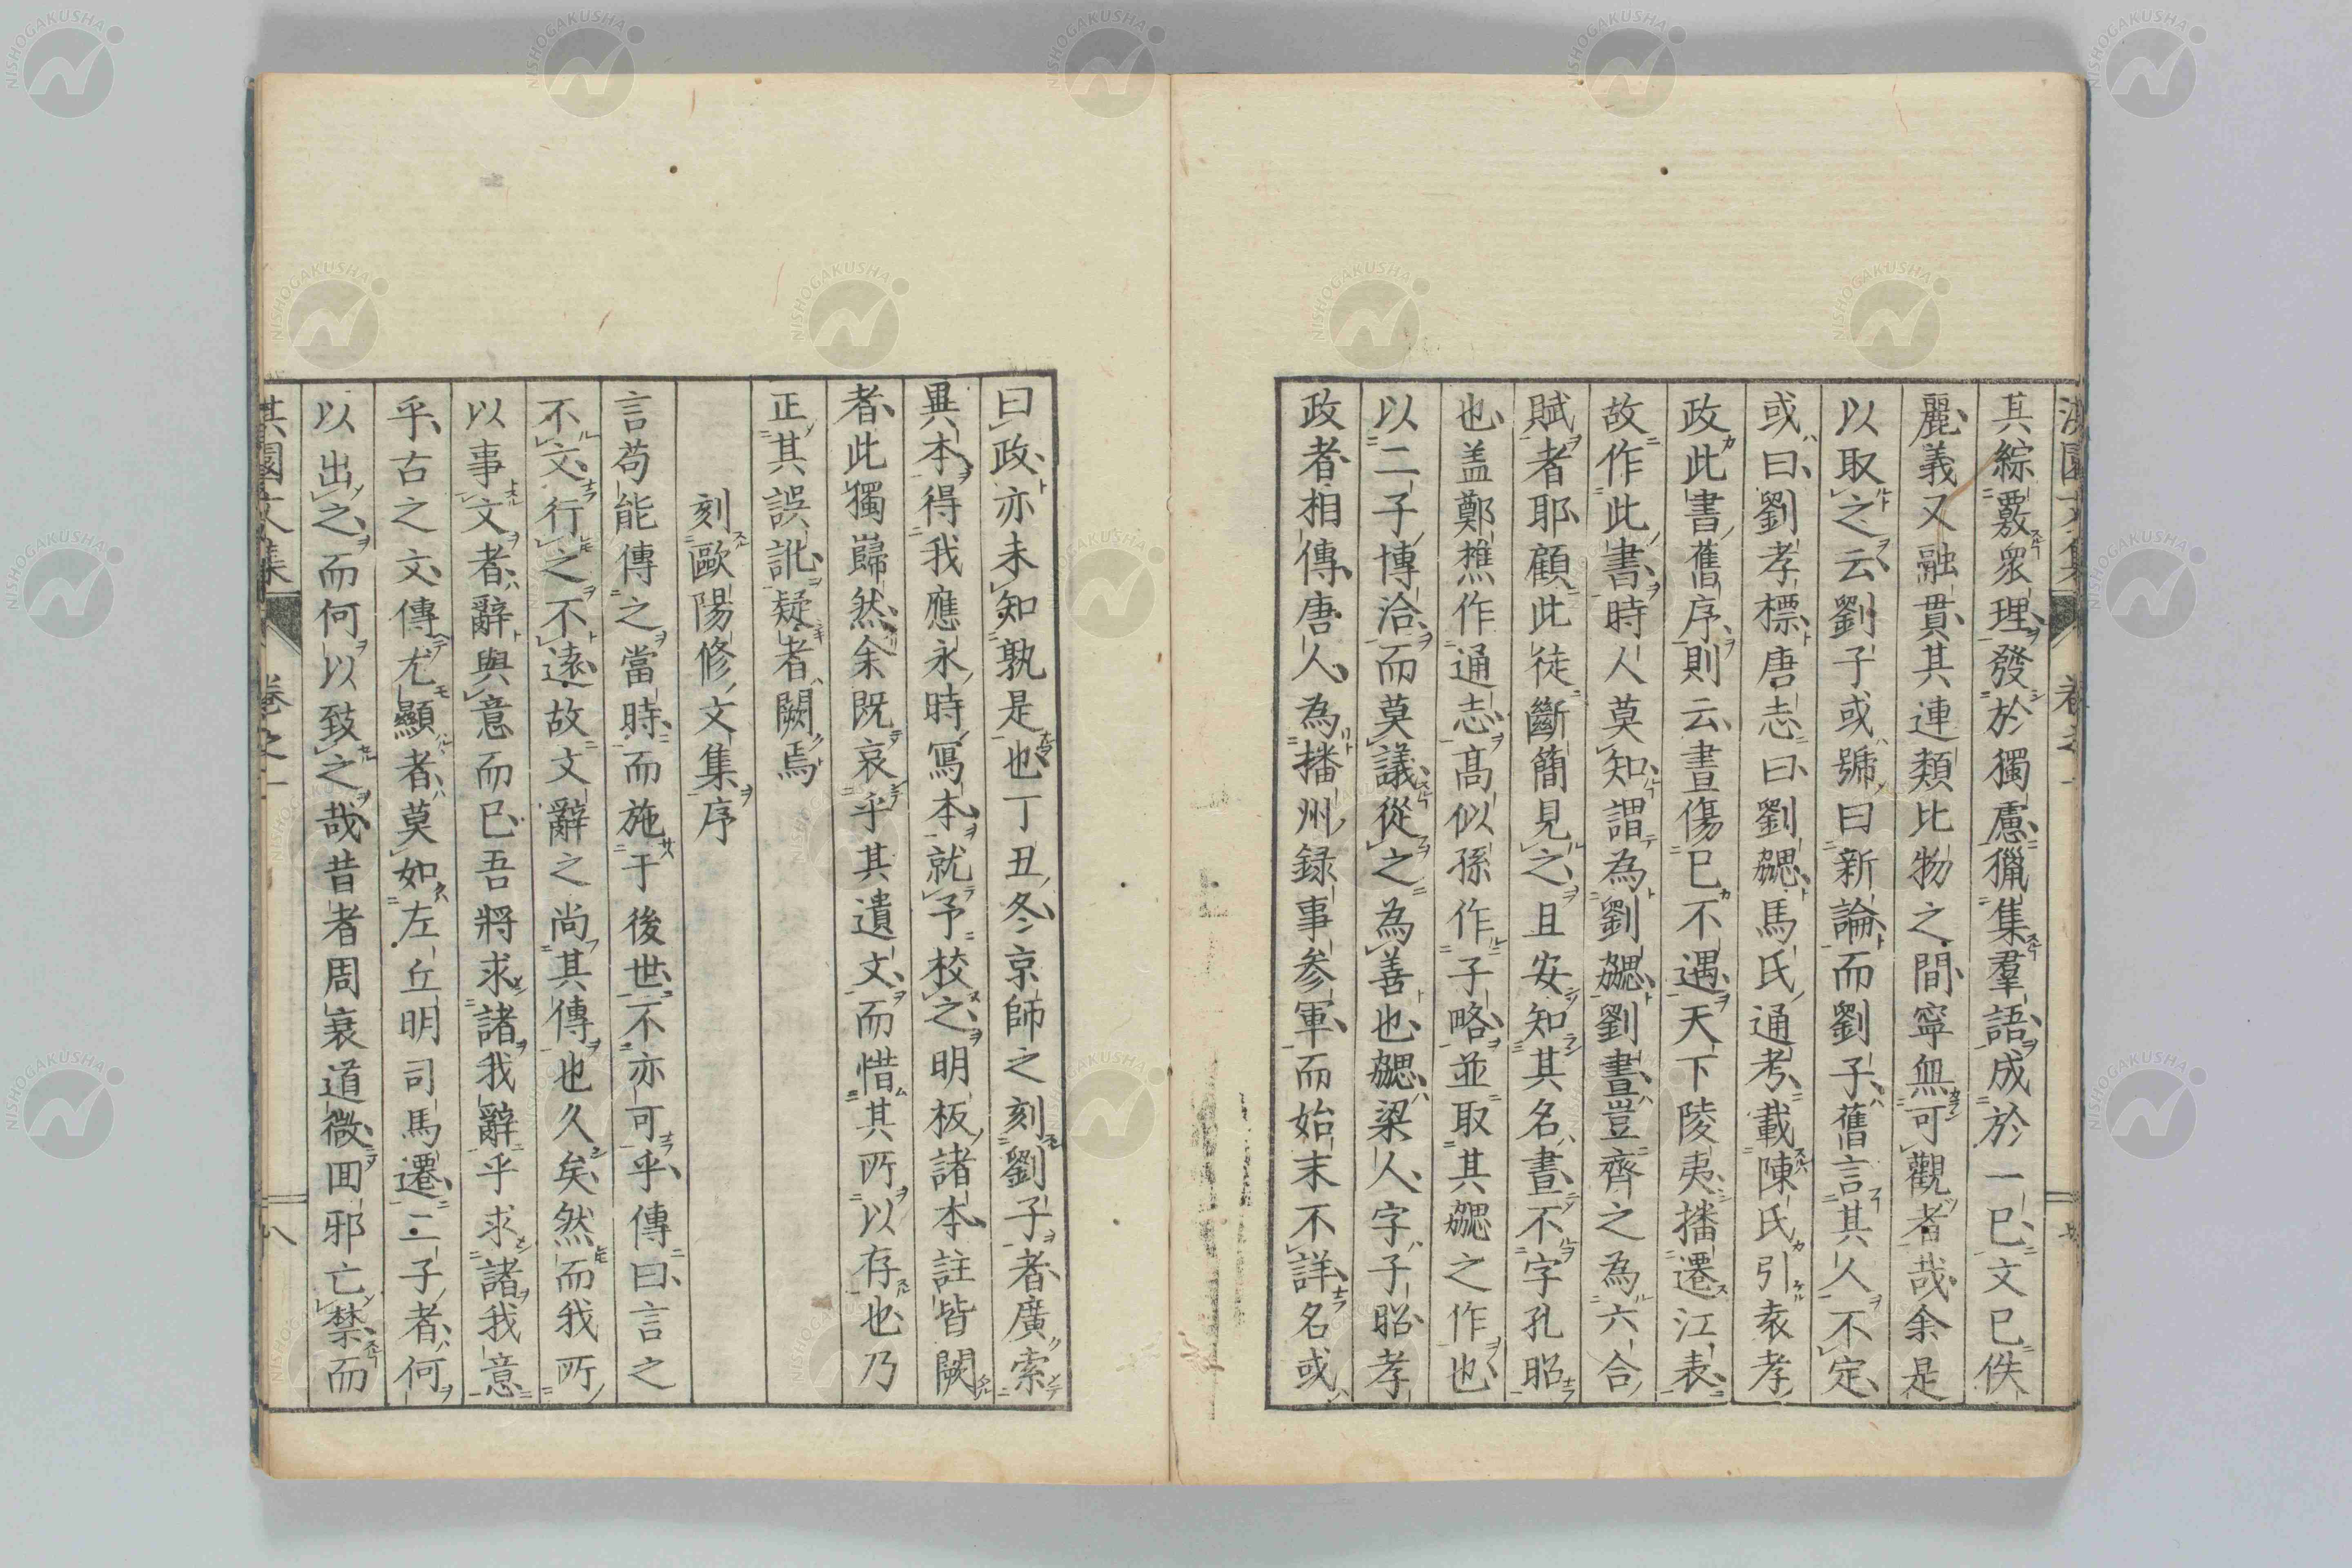 其綜覈衆理發於獨慮獵集羣語成於一已文已佚
麗義又融貫其連類比物之間寧無可觀者哉余是
以取之云劉子或號曰新論而劉子舊言其人不定
或曰劉孝標唐志曰劉勰馬氏通考載陳氏引袁孝
政此書舊序則云晝傷已不遇天下陵夷播遷江表
故作此書時人莫知謂為劉勰劉晝豈齊之為六合
賦者耶顧此徒斷簡見之且安知其名晝不字孔昭
也盖鄭樵作通志高似孫作子略並取其勰之作也
以二子博洽而莫議從之為善也勰梁人字子昭孝
政者相傳唐人為播州録事参軍而始末不詳名或
曰政亦未知孰是也丁丑冬京師之刻劉子者廣索
異本得我應永時寫本就予校之明板諸本註皆闕
者此獨巋然余既哀乎其遺文而惜其所以存也乃
正其誤訛疑者闕焉
刻歐陽修文集序
言苟能傳之當時而施于後世不亦可乎傳曰言之
不文行之不遠故文辭之尚其傳也久矣然而我所
以事文者辭與意而已吾將求諸我辭乎求諸我意
乎古之文傳尤顯者莫如左丘明司馬遷二子者何
以出之而何以致之哉昔者周衰道微回邪亡禁而
淇園文集 卷之一 八
NISHOGAKUSHA